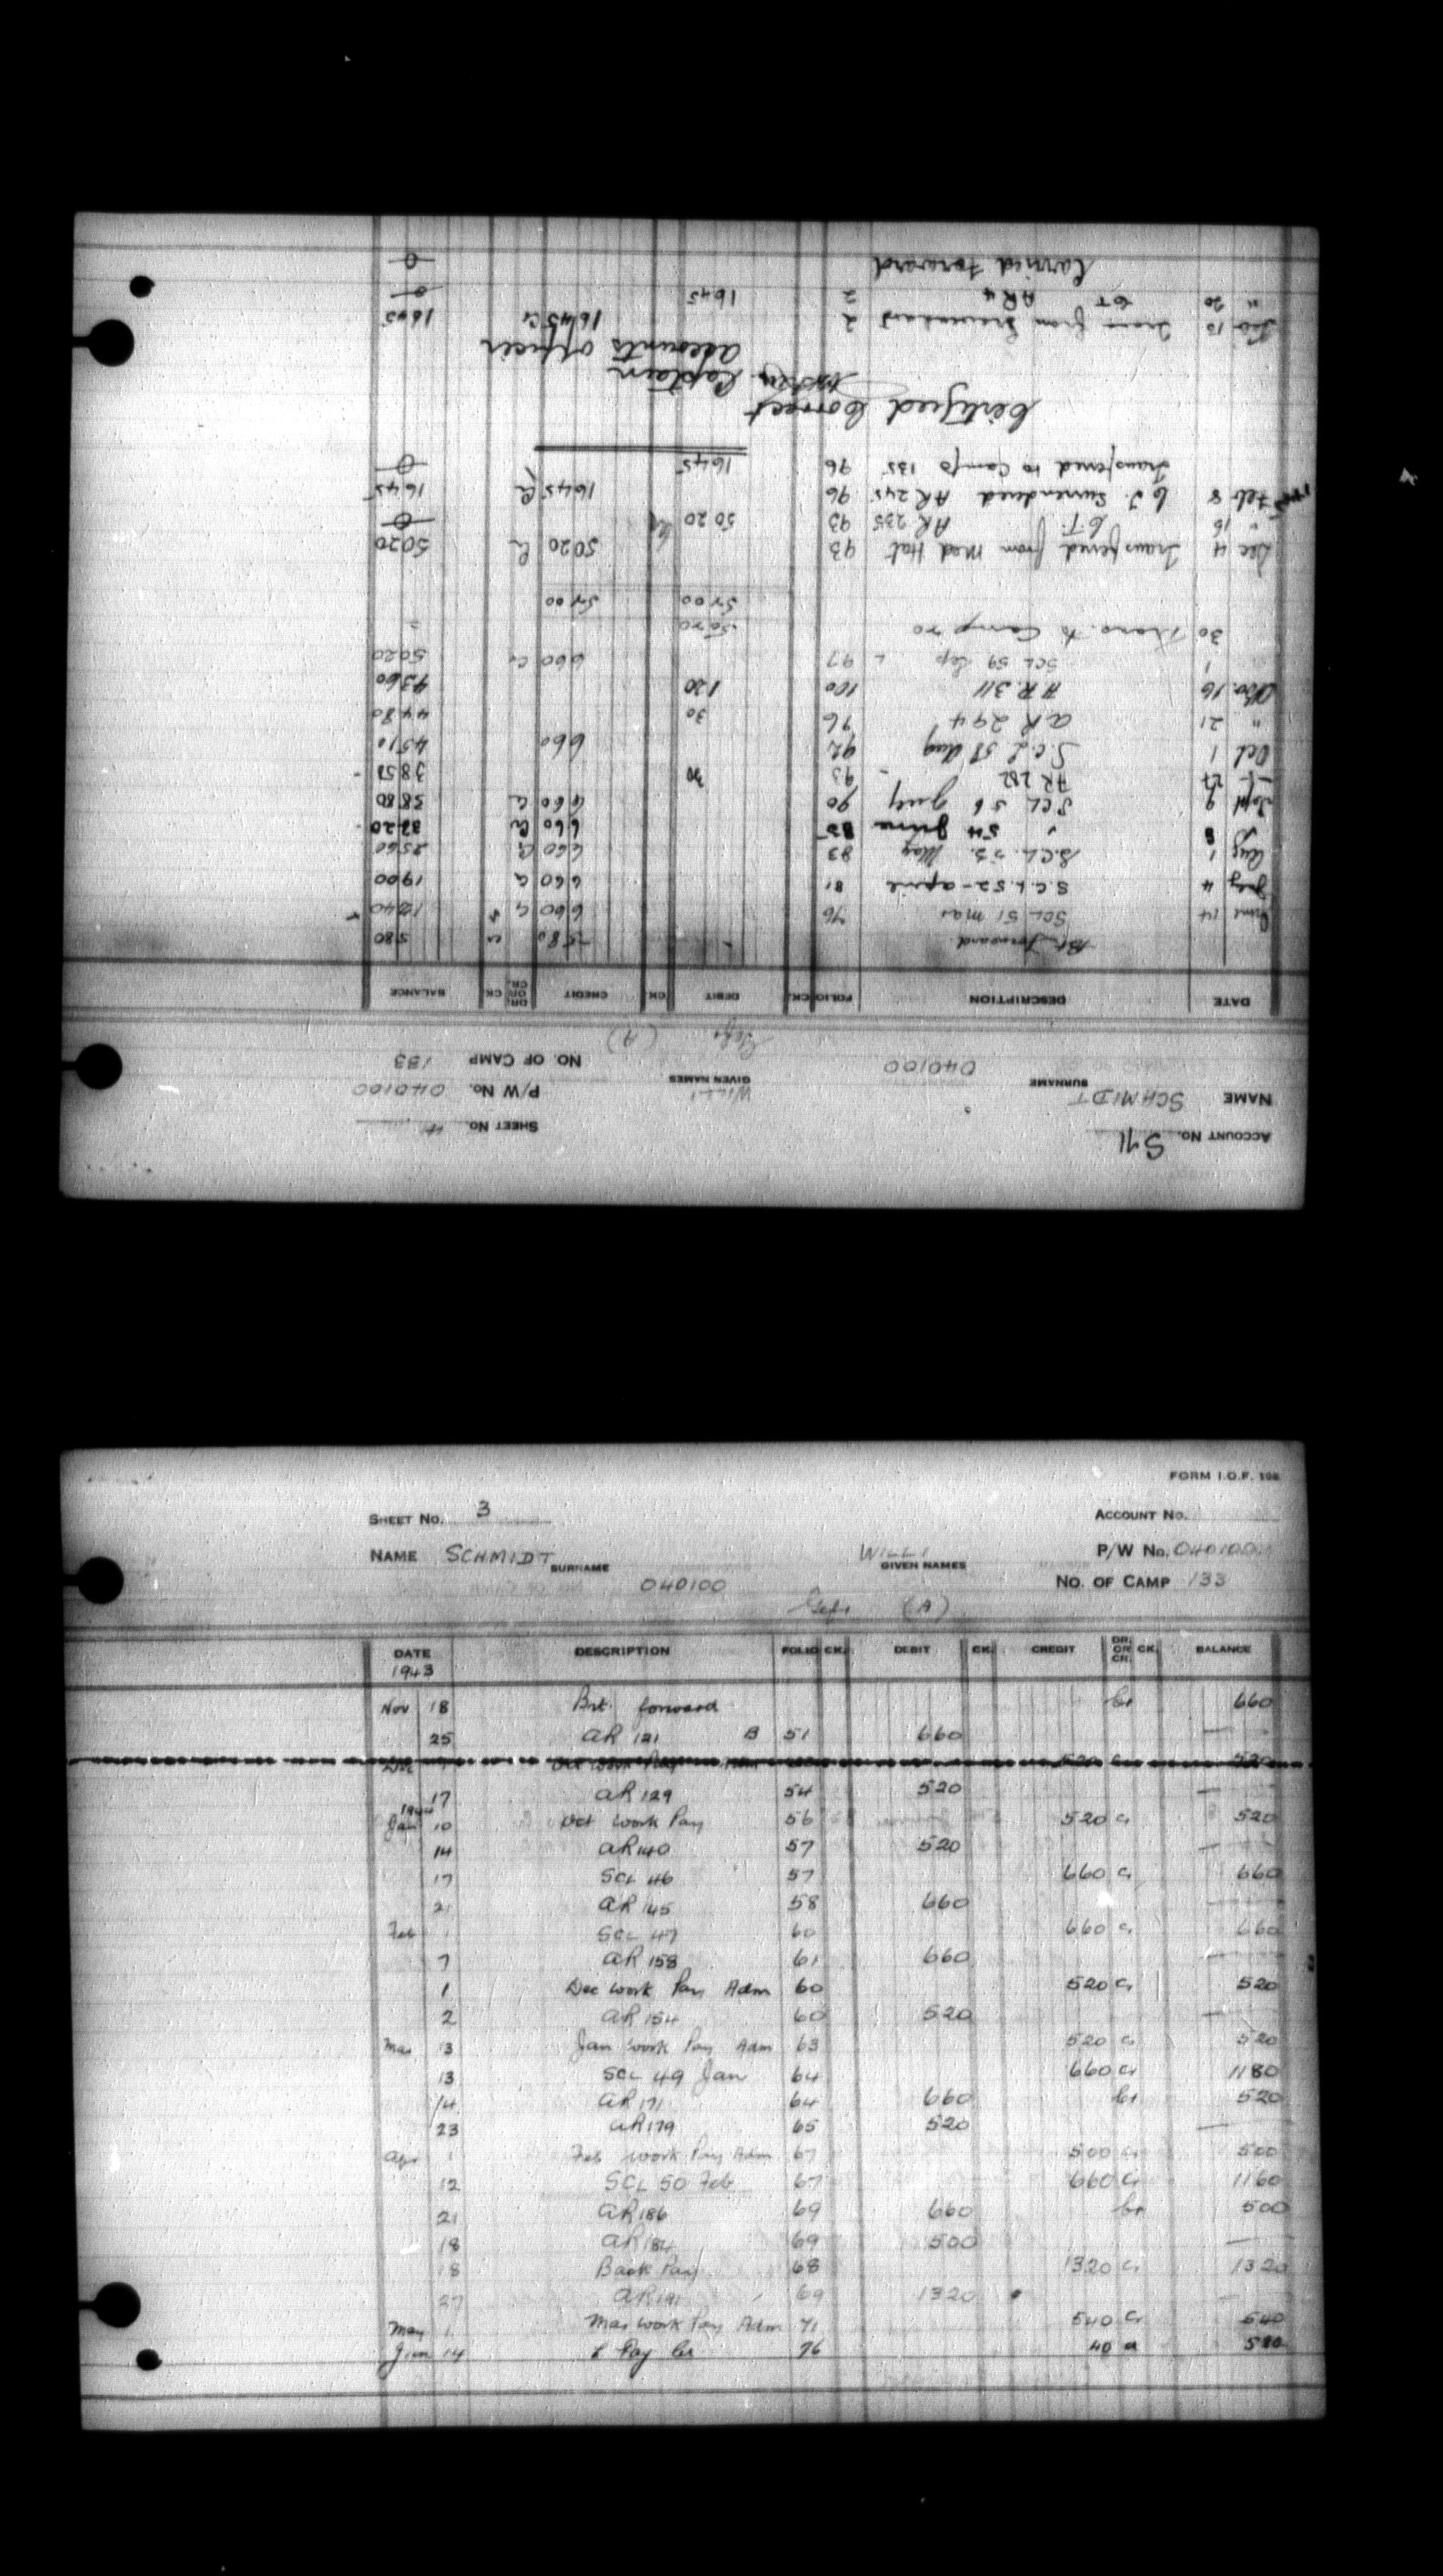 ACCOUNT No. 571 SHEET No. 4
NAME SCHMIDT SURNAME WILLI GIVEN NAMES P/W No. 040100
040100 NO. OF CAMP 133
Gefr (A)
DATE DESCRIPTION FOLIO CK. DEBIT CK. CREDIT DR. OR CR. CK. BALANCE
Bt. forward 580 cr 580
June 14 SCL 51 Mar 76 660 Cr 1240
July 4 S.C.L. 52 - april 81 660 Cr 1900
Aug 1 S.C.L. 53. May 83 660 Cr 2560
8 " 54 June 85 660 Cr 3220
Sept 9 SCL 56 July 90 660 Cr 3880
27 AR 282 93 30 3850
Oct 1 S.C.L 58 Aug 92 660 4510
" 21 AR 294 96 30 4480
Nov. 16 AR. 311 100 120 4360
1 SCL 59 Sep 97 660 Cr 5020
30 Trans. to Camp 70 5020
5200 5200
Dec 4 Transferred from Med Hat 93 5020 Cr 5020
" 16 C.T. AR 235 93 5020 0
Feb 8 C.T. Surrendered AR 245 96 1645 Cr 1645
Transferred to Camp 135 96 1645 0
Certified Correct
Captain
Accounts Officer
Feb 13 Trans from 2 1645 Cr 1645
" 20 CT AR 4 2 1645 0
Carried Forward 0
FORM I.O.F. 108
SHEET No. 3 ACCOUNT No.
NAME SCHMIDT SURNAME WILLI GIVEN NAMES P/W No. 040100
040100 No. OF CAMP 133
Gefr (A)
DATE DESCRIPTION FOLIO CK. DEBIT CK. CREDIT DR. OR CR. CK. BALANCE
1943
Nov 18 Brt. forward Cr 660
25 AR 121 B 51 660 —
Dec Oct Work Pay 520 Cr 520
17 AR 129 54 520 —
1944
Jan 10 Oct Work Pay 56 520 Cr 520
14 AR 140 57 520 —
17 SCL 46 57 660 Cr 660
21 AR 145 58 660 —
Feb 1 SCL 47 60 660 Cr 660
7 AR 158 61 660 —
1 Dec Work Pay Adm 60 520 Cr 520
2 AR 154 60 520 —
Mar 13 Jan Work Pay Adm 63 520 Cr 520
13 SCL 49 Jan 64 660 Cr 1180
14 AR 171 64 660 Cr 520
23 AR 179 65 520 —
Apr 1 Feb Work Pay Adm 67 500 Cr 500
12 SCL 50 Feb 67 660 Cr 1160
21 AR 186 69 660 Cr 500
18 AR 184 69 500 —
18 Back Pay 68 1320 Cr 1320
27 AR 191 69 1320 —
May 1 Mar Work Pay Adm 71 540 Cr 540
Jun 14 Pay Cr 76 40 Cr 580